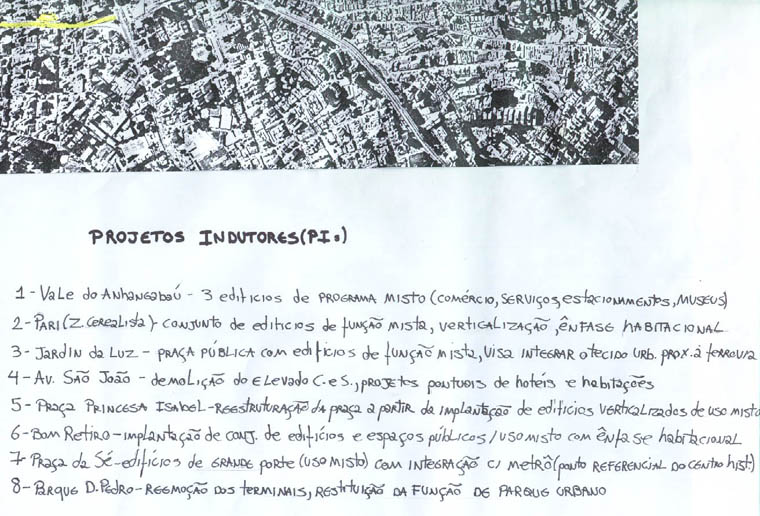 PROJETOS INDUTORES (PIs)
1 - VALE do ANHANGABAÚ - 3 edifícios de PROGRAMA MISTO (COMÉRCIO, SERVIÇOS, estacionamentos, MUSEUS)
2 - PARI (Z. CEREALISTA) - CONJUNTO de edifícios de função mista, VERTICALIZAÇÃO, ÊNFASE HABITACIONAL
3 - JARDIN da LUZ - PRAÇA PÚBLICA com edifícios de função mista, VISA INTEGRAR o tecido URB. PROX. à FERROVIA
4 - AV. SÃO JOÃO - demolição do ELEVADO C. e S., projetos pontuais de hotéis e habitações
5 - PRAÇA PRINCESA ISABEL - REESTRUTURAÇÃO da praça a partir da implantação de edifícios VERTICALIZADOS de uso misto
6 - BOM RETIRO - implantação de CONJ. de edifícios e espaços públicos / uso misto com ênfase habitacional
7 - PRAÇA da SÉ - edifícios de GRANDE porte (USO MISTO) com INTEGRAÇÃO c/ metrô (ponto REFERENCIAL DO CENTRO HIST.)
8 - PARQUE D. PEDRO - REEMOÇÃO DOS TERMINAIS, RESTITUIÇÃO DA FUNÇÃO DE PARQUE URBANO